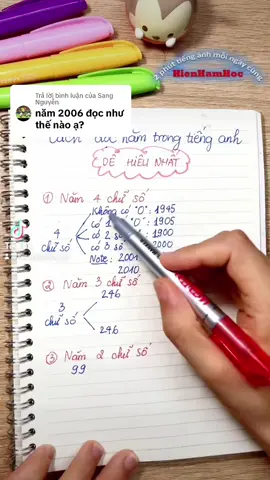 2 phút tiếng anh mỗi ngày cùng
HienHamHoc
Trả lời bình luận của Sang
Nguyễn
năm 2006 đọc như
thế nào ạ?
Cách đọc năm trong tiếng anh
DỄ HIỂU NHẤT
① Năm 4 chữ số
Không có "0": 1945
có 1 "0": 1905
4
chữ số
có 2 số : 1900
có 3 số : 2000
Note: 2001
2010
② Năm 3 chữ số
246
3
chữ số
246
③ Năm 2 chữ số
99